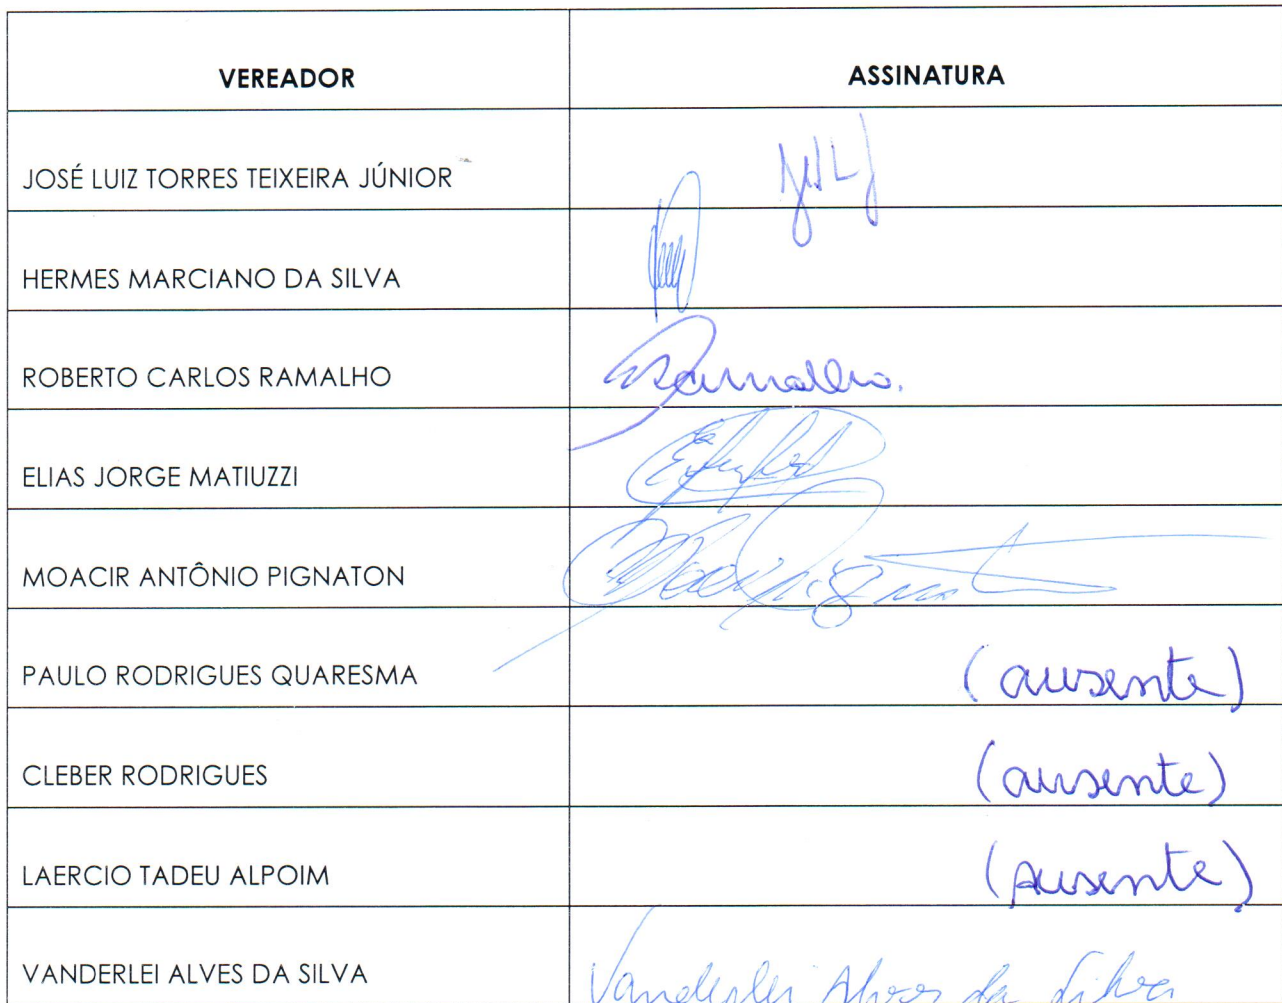 VEREADOR ASSINATURA
JOSÉ LUIZ TORRES TEIXEIRA JÚNIOR
HERMES MARCIANO DA SILVA
ROBERTO CARLOS RAMALHO Ramalho.
ELIAS JORGE MATIUZZI
MOACIR ANTÔNIO PIGNATON
PAULO RODRIGUES QUARESMA (ausente)
CLEBER RODRIGUES (ausente)
LAERCIO TADEU ALPOIM (ausente)
VANDERLEI ALVES DA SILVA Vanderlei Alves da Silva